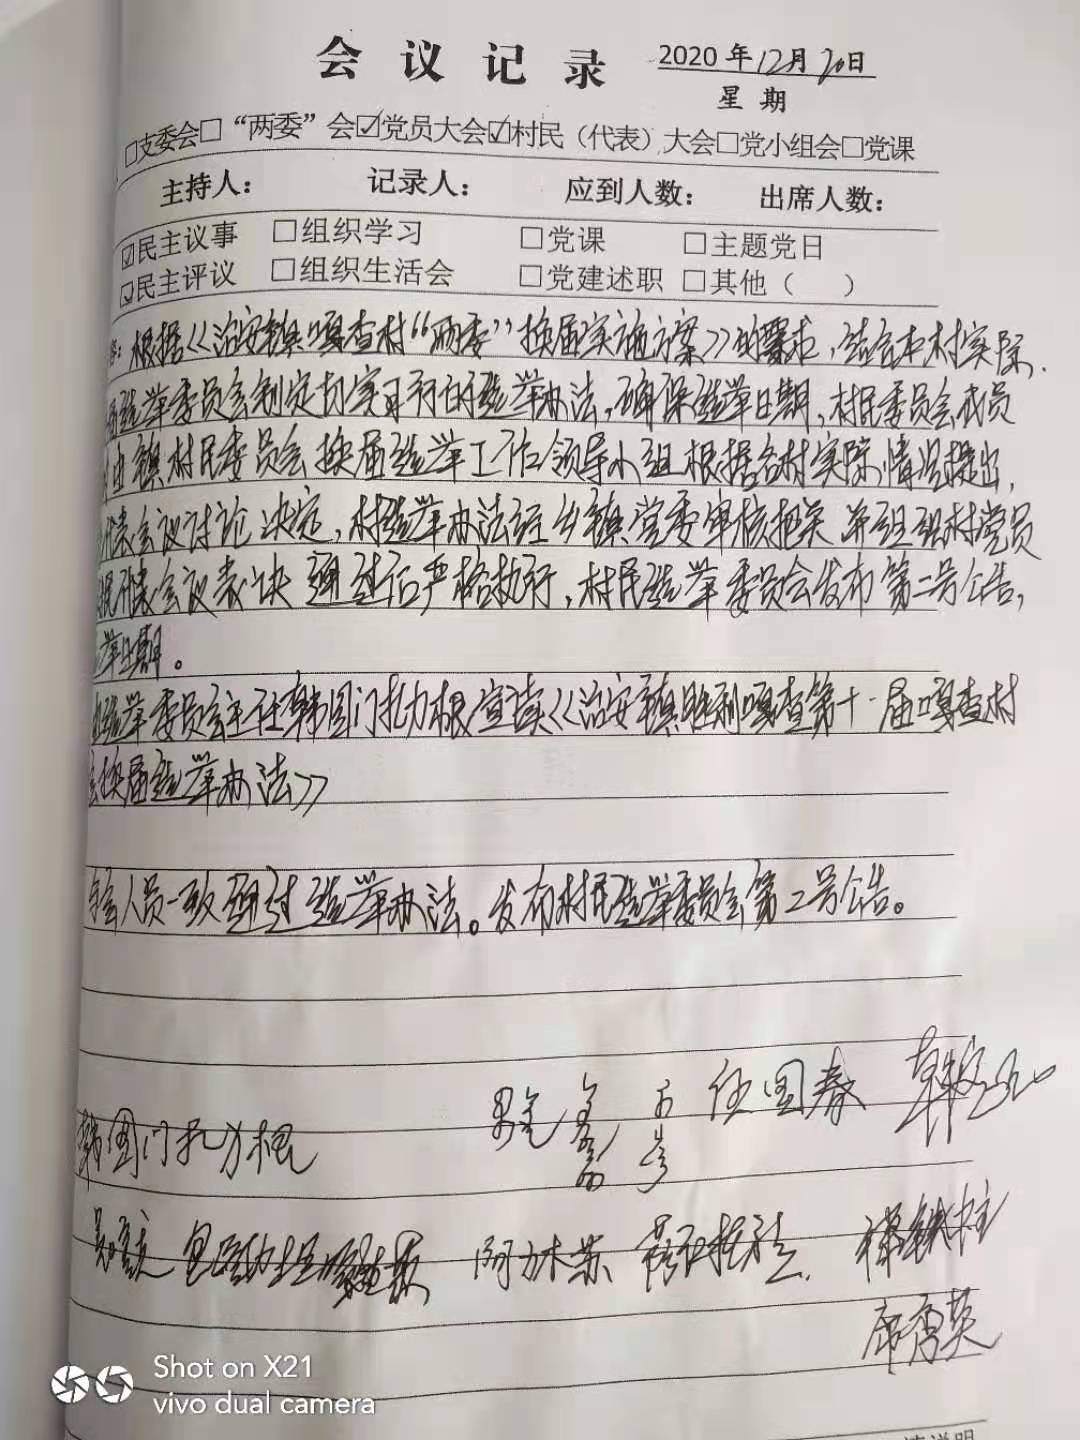 会议记录
2020年12月20日
星期
□支委会□“两委”会☑党员大会☑村民（代表）大会□党小组会□党课
主持人： 记录人： 应到人数： 出席人数：
☑民主议事 □组织学习 □党课 □主题党日
☑民主评议 □组织生活会 □党建述职 □其他（ ）
容：根据《治安镇嘎查村“两委”换届实施方案》的要求，结合本村实际，
选举委员会制定切实可行的选举办法，确保选举日期，村民委员会成员
由镇村民委员会换届选举工作领导小组根据各村实际情况提出，
代表会议讨论决定，村选举办法经乡镇党委审核把关并组织村党员
民代表会议表决通过后严格执行，村民选举委员会发布第二号公告，
选举日期。
选举委员会主任韩图门扎力根宣读《治安镇胜利嘎查第十一届嘎查村
换届选举办法》
与会人员一致通过选举办法。发布村民选举委员会第2号公告。
任国春
韩图门扎力根
阿力木苏
席秀英
Shot on X21
vivo dual camera